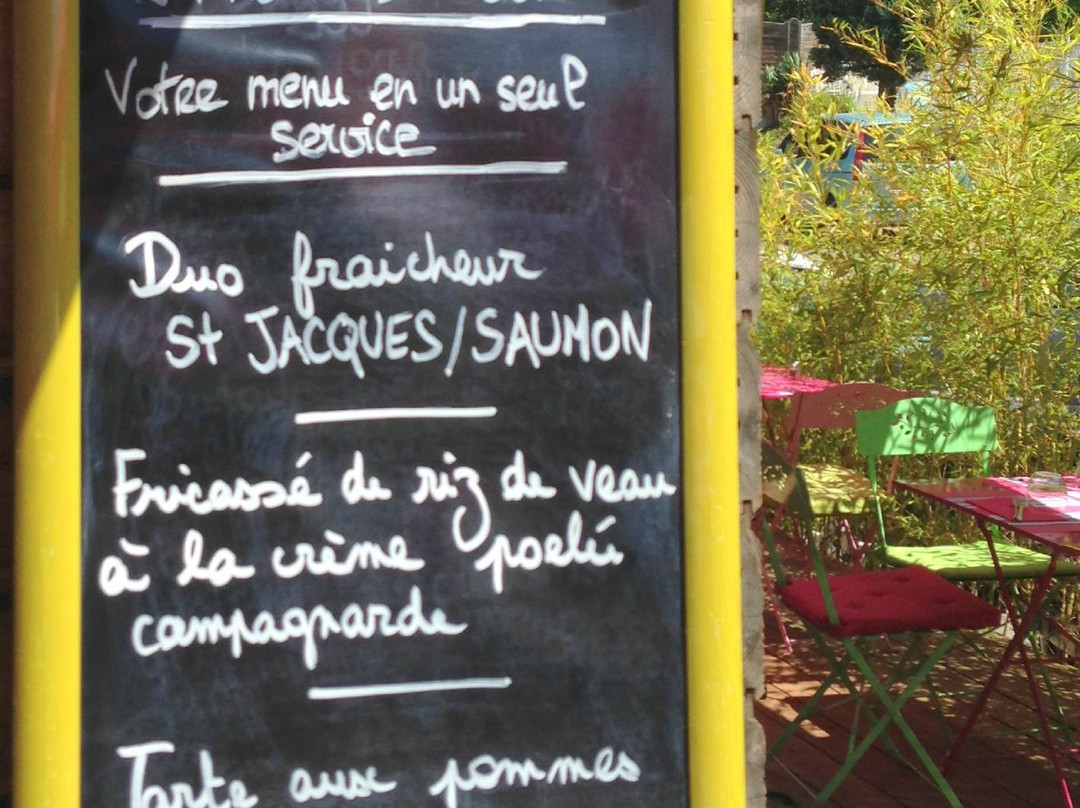 Votre menu en un seul
service
Duo fraicheur
St JACQUES/SAUMON
Fricassé de riz de veau
à la crème poelée
campagnarde
Tarte aux pommes